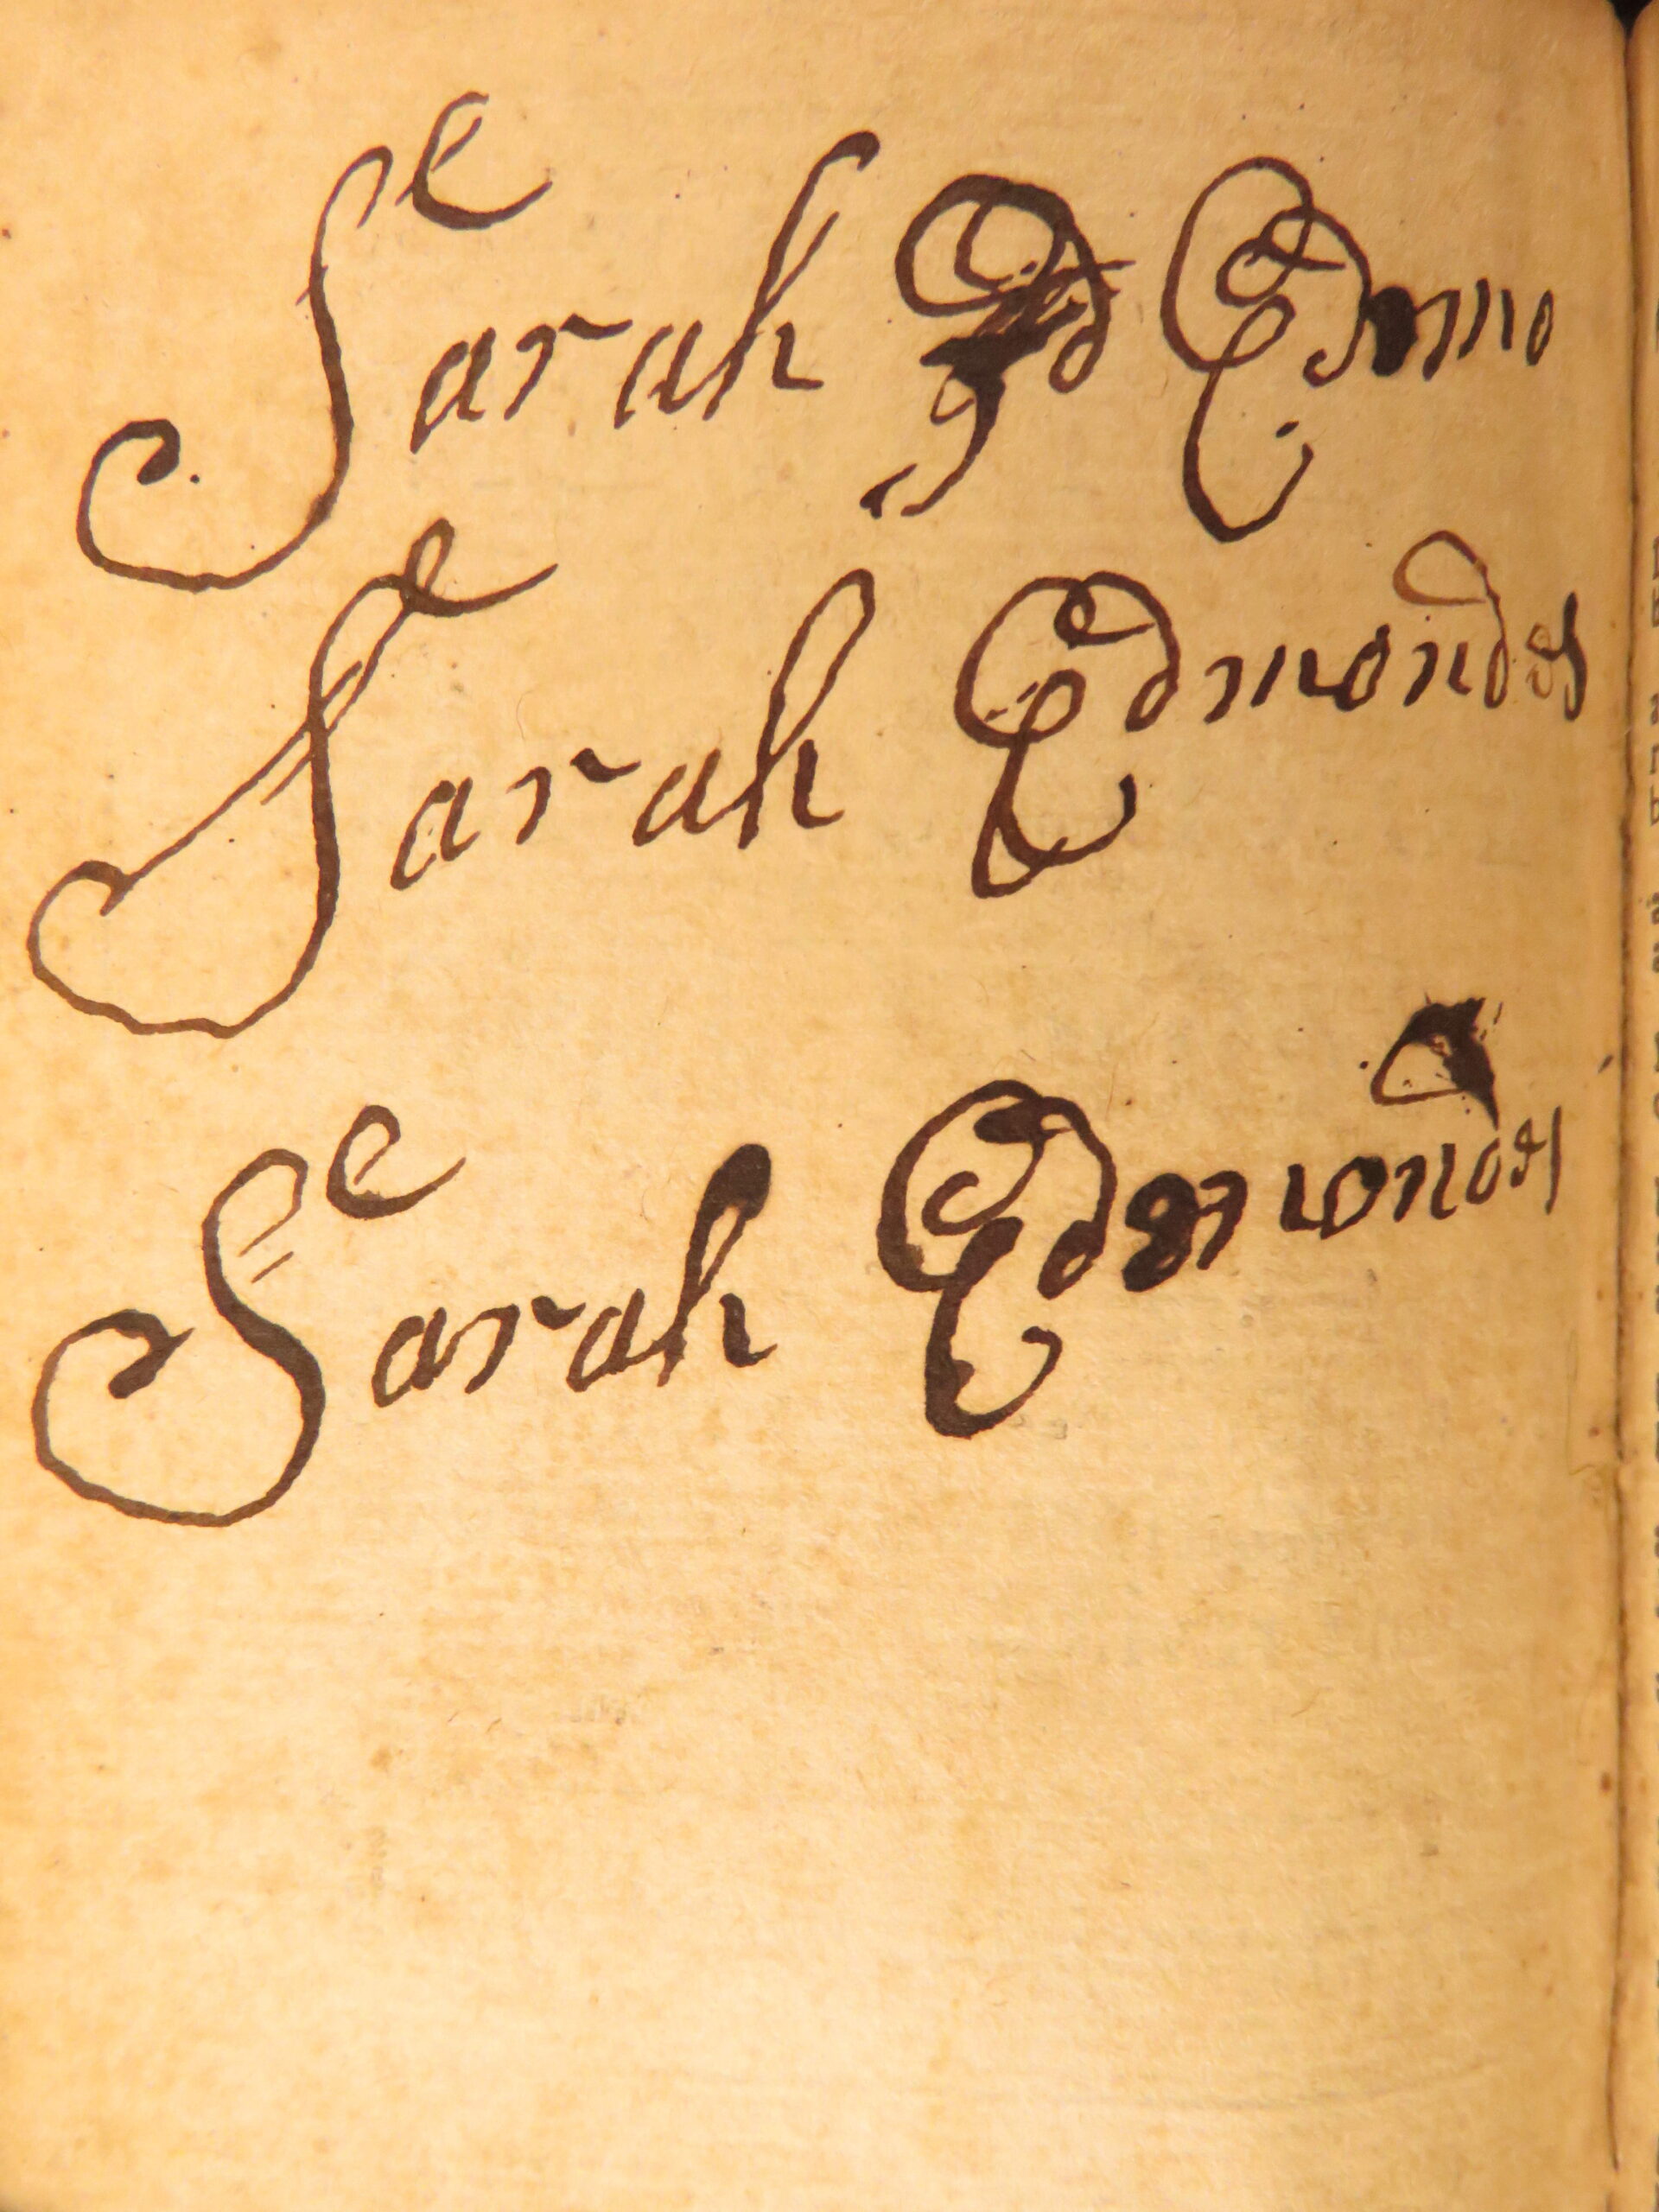 Sarah Ed Edmo
Sarah Edmondes
Sarah Edmondes